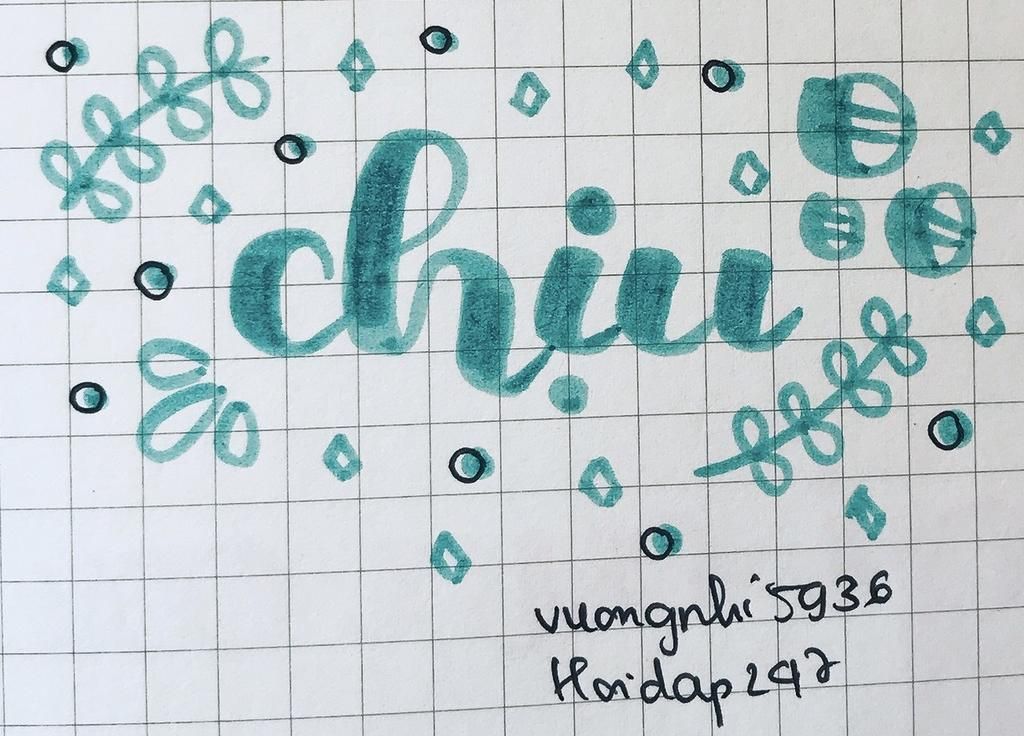 chịu
vuongnhi5936
Hoidap247